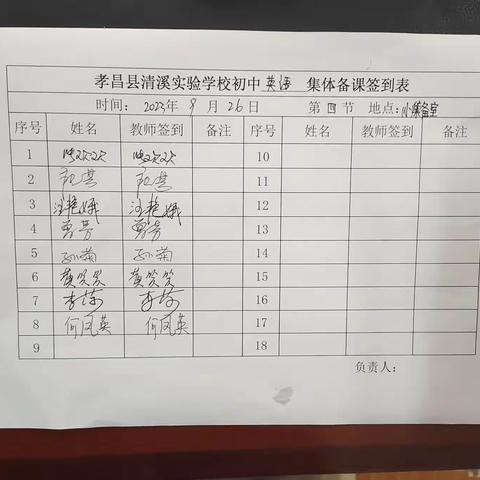 孝昌县清溪实验学校初中 英语 集体备课签到表
时间: 2023年 9 月 26 日 第 四 节 地点: 小集备室
序号 姓名 教师签到 备注 序号 姓名 教师签到 备注
1 10
2 11
3 汪艳娥 汪艳娥 12
4 曾芳 曾芳 13
5 孙菊 孙菊 14
6 黄笑笑 黄笑笑 15
7 李荷 李荷 16
8 何凤英 何凤英 17
9 18
负责人: